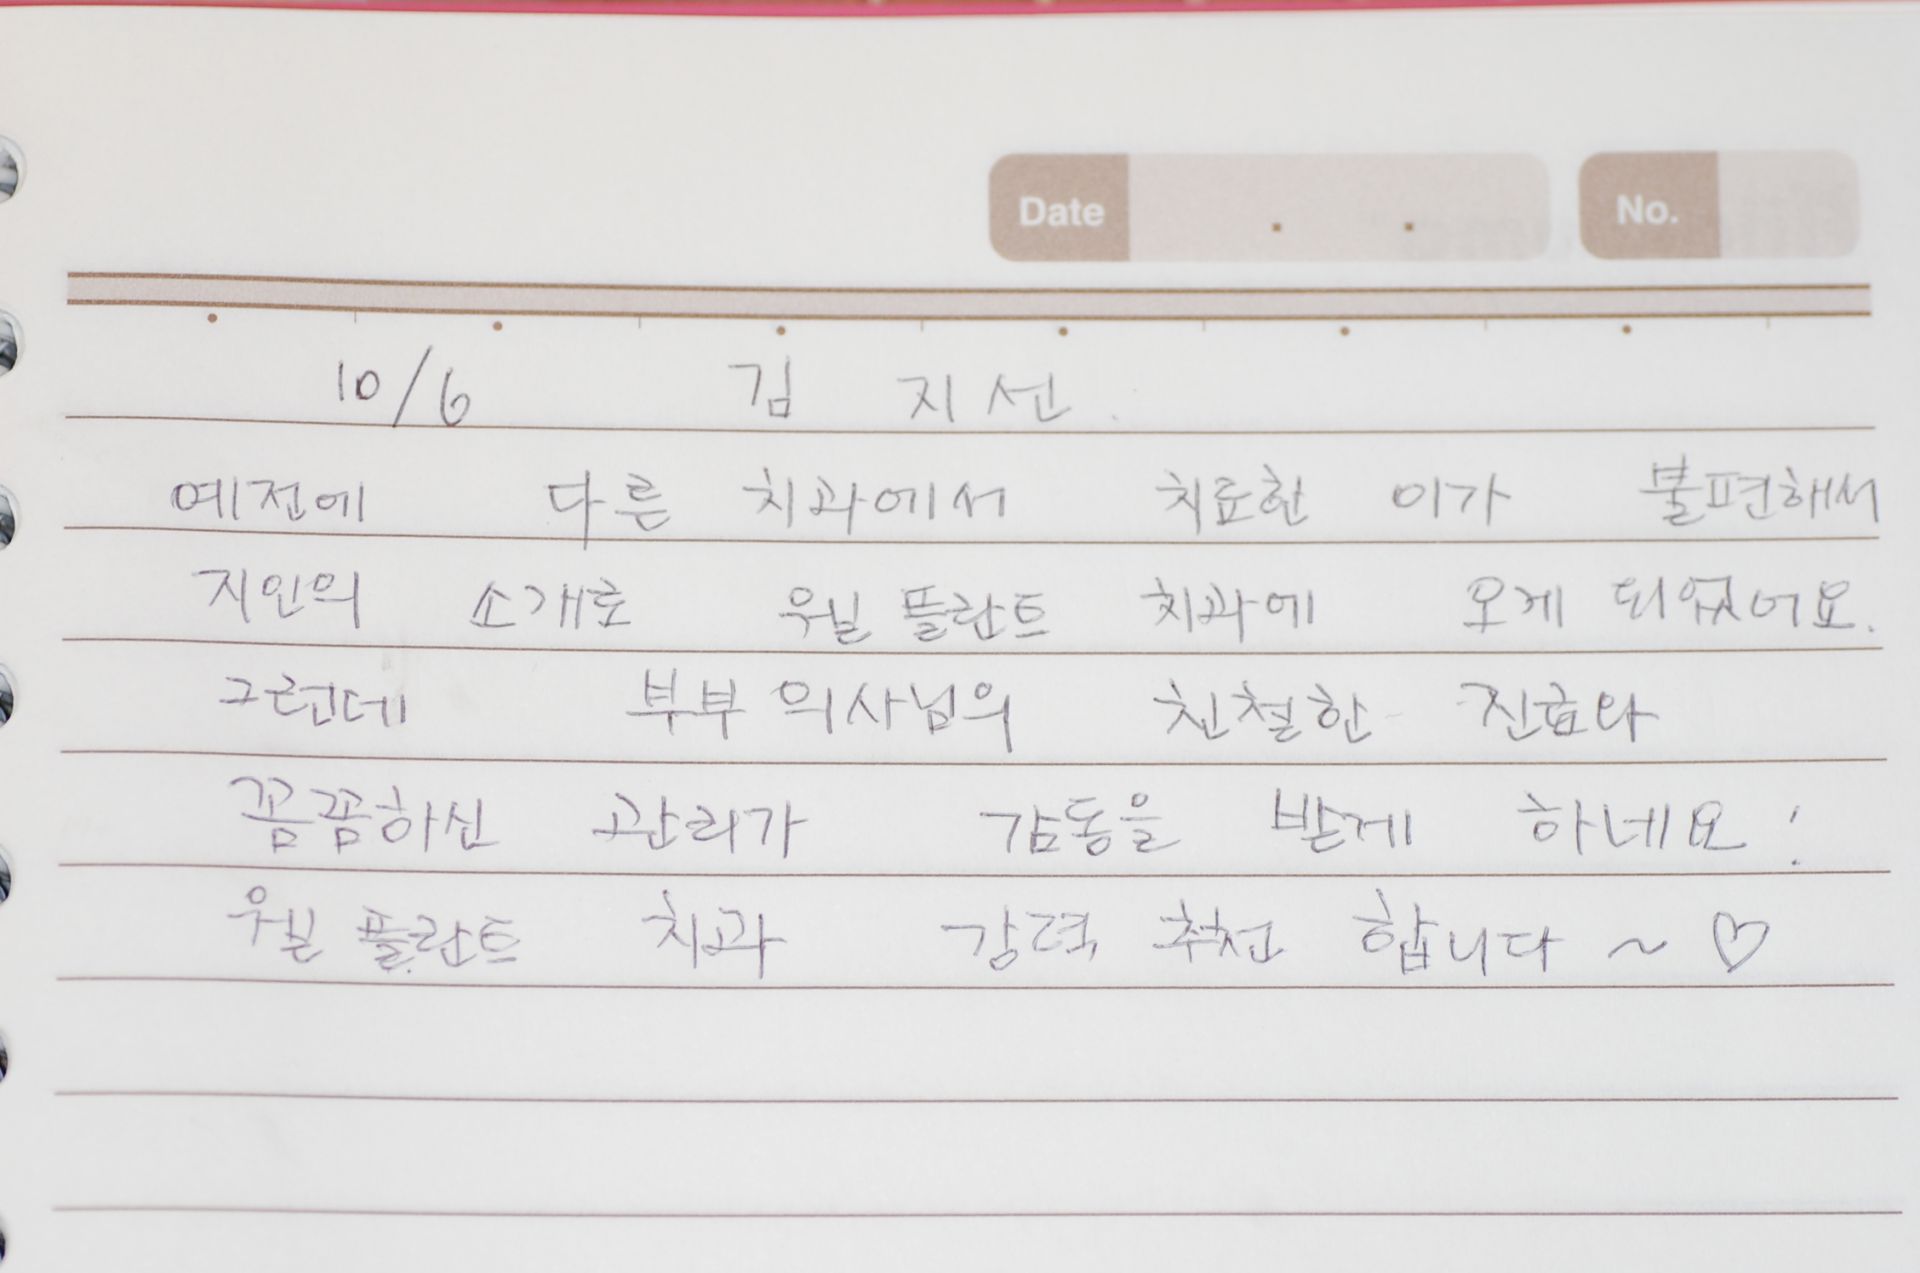 Date . . No.
10/6 김 지선.
예전에 다른 치과에서 치료한 이가 불편해서
지인의 소개로 우월플란트 치과에 오게 되었어요.
그런데 부부 의사님의 친철한 진료와
꼼꼼하신 관리가 감동을 받게 하네요!
치과 강력 추천 합니다~♡